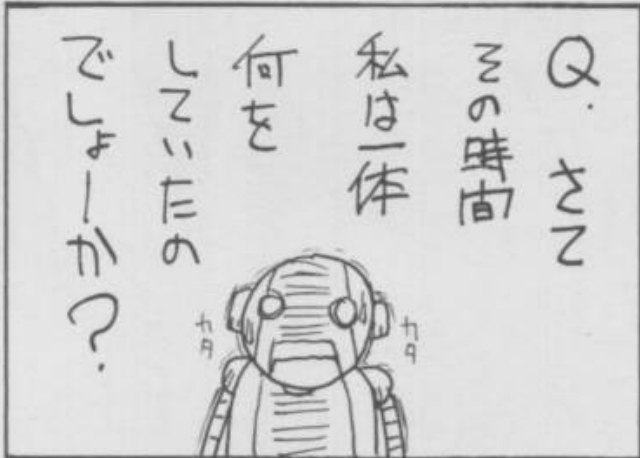 Q. さて
その時間
私は一体
何を
していたの
でしょーか?
カタ
カタ